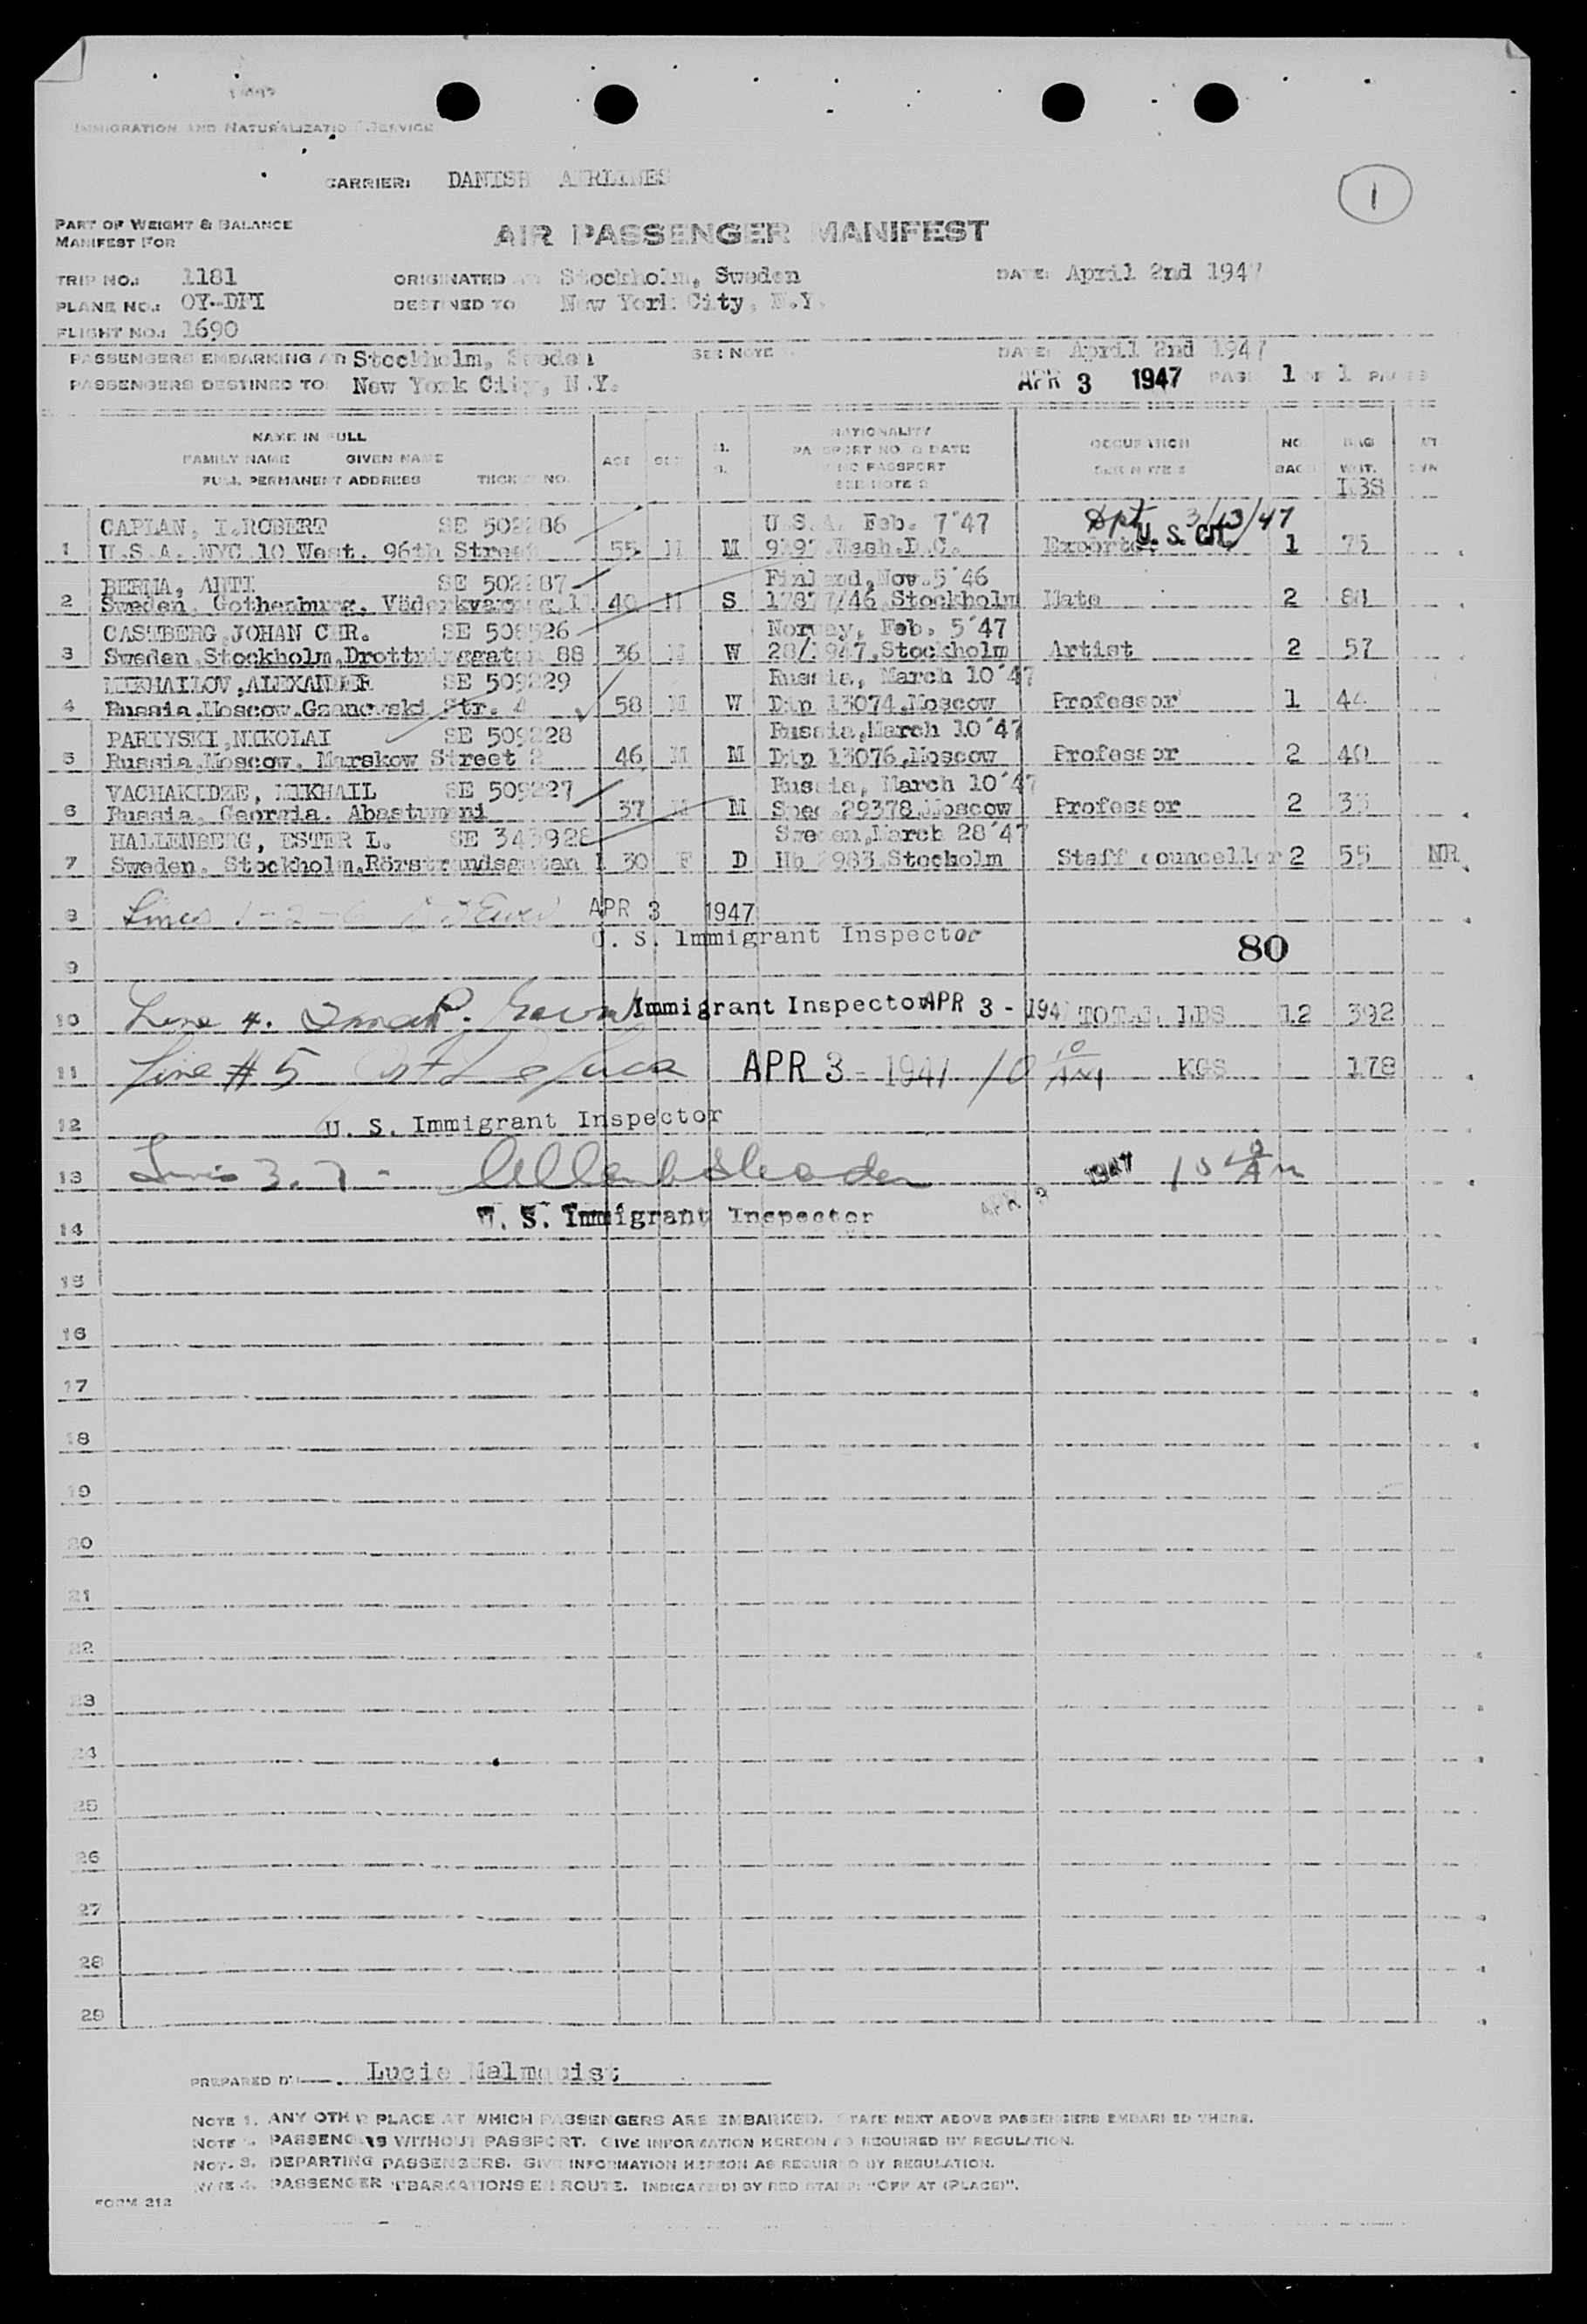 IMMIGRATION AND NATURALIZATION SERVICE
CARRIER: DANISH AIRLINES
1
PART OF WEIGHT & BALANCE
MANIFEST FOR
AIR PASSENGER MANIFEST
TRIP NO.: 1181 ORIGINATED Stockholm, Sweden DATE: April 2nd 1947
PLANE NO.: OY-DFI DESTINED TO New York City, N.Y.
FLIGHT NO.: 1690
PASSENGERS EMBARKING AT: Stockholm, Sweden SEE NOTE DATE: April 2nd 1947
PASSENGERS DESTINED TO New York City, N.Y. APR 3 1947 PAGE 1 OF 1 PAGES
NAME IN FULL NATIONALITY
FAMILY NAME GIVEN NAME AGE SEX PASSPORT NO. & DATE OCCUPATION NO. BAG
FULL PERMANENT ADDRESS TICKET NO. NO PASSPORT SEE NOTE BAGS WGT.
SEE NOTE 2 LBS
CAPLAN, I.ROBERT SE 502286 U.S.A. Feb. 7'47 Dpt 3/13/47
1 U.S.A. NYC 10 West. 96th Street 55 M M Wash.D.C. Exporter U. S. Cit. 1 75
ANTI SE 502287 Finland, Nov.5'46
2 Sweden. Gothenburg. 40 M S Stockholm Mate 2 88
CASTBERG, JOHAN CHR. SE 508526 Norway, Feb. 5'47
3 Sweden.Stockholm.Drottninggatan 88 36 M W 28/1947.Stockholm Artist 2 57
MIKHAILOV, ALEXANDER SE 509229 Russia, March 10'47
4 Russia.Moscow. Str. 4 58 M W Dip 13074.Moscow Professor 1 44
PARIYSKI, NIKOLAI SE 509228 Russia, March 10'47
5 Russia.Moscow. Marskow Street 2 46 M M Dip 13076.Moscow Professor 2 40
VACHAKIDZE, MIKHAIL SE 509227 Russia, March 10'47
6 Russia. Georgia. Abastumani 37 M M Spec 29378.Moscow Professor 2
HALLENBERG, ESTER L. SE 343928 Sweden, March 28'47
7 Sweden. Stockholm.Rörstrandsgatan 1 30 F D Hb 2983.Stocholm Staff councellor 2 55 NR
8 Lines 1-2-6 APR 3 1947
U. S. Immigrant Inspector
9 80
10 Line 4. Immigrant Inspector APR 3 - 194 TOTAL LBS 12 392
11 Line #5 APR 3 - 1947 10 AM KGS 178
12 U. S. Immigrant Inspector
13 Lines 3. 7 - 1947
14 U. S. Immigrant Inspector
15
16
17
18
19
20
21
22
23
24
25
26
27
28
29
PREPARED BY Lucie Malmquist
NOTE 1. ANY OTHER PLACE AT WHICH PASSENGERS ARE EMBARKED. STATE NEXT ABOVE PASSENGERS EMBARKED THERE.
NOTE 2. PASSENGERS WITHOUT PASSPORT. GIVE INFORMATION HEREON AS REQUIRED BY REGULATION.
NOTE 3. DEPARTING PASSENGERS. GIVE INFORMATION HEREON AS REQUIRED BY REGULATION.
NOTE 4. PASSENGER DEBARKATIONS EN ROUTE. INDICATE(D) BY RED STAMP: "OFF AT (PLACE)".
FORM 212